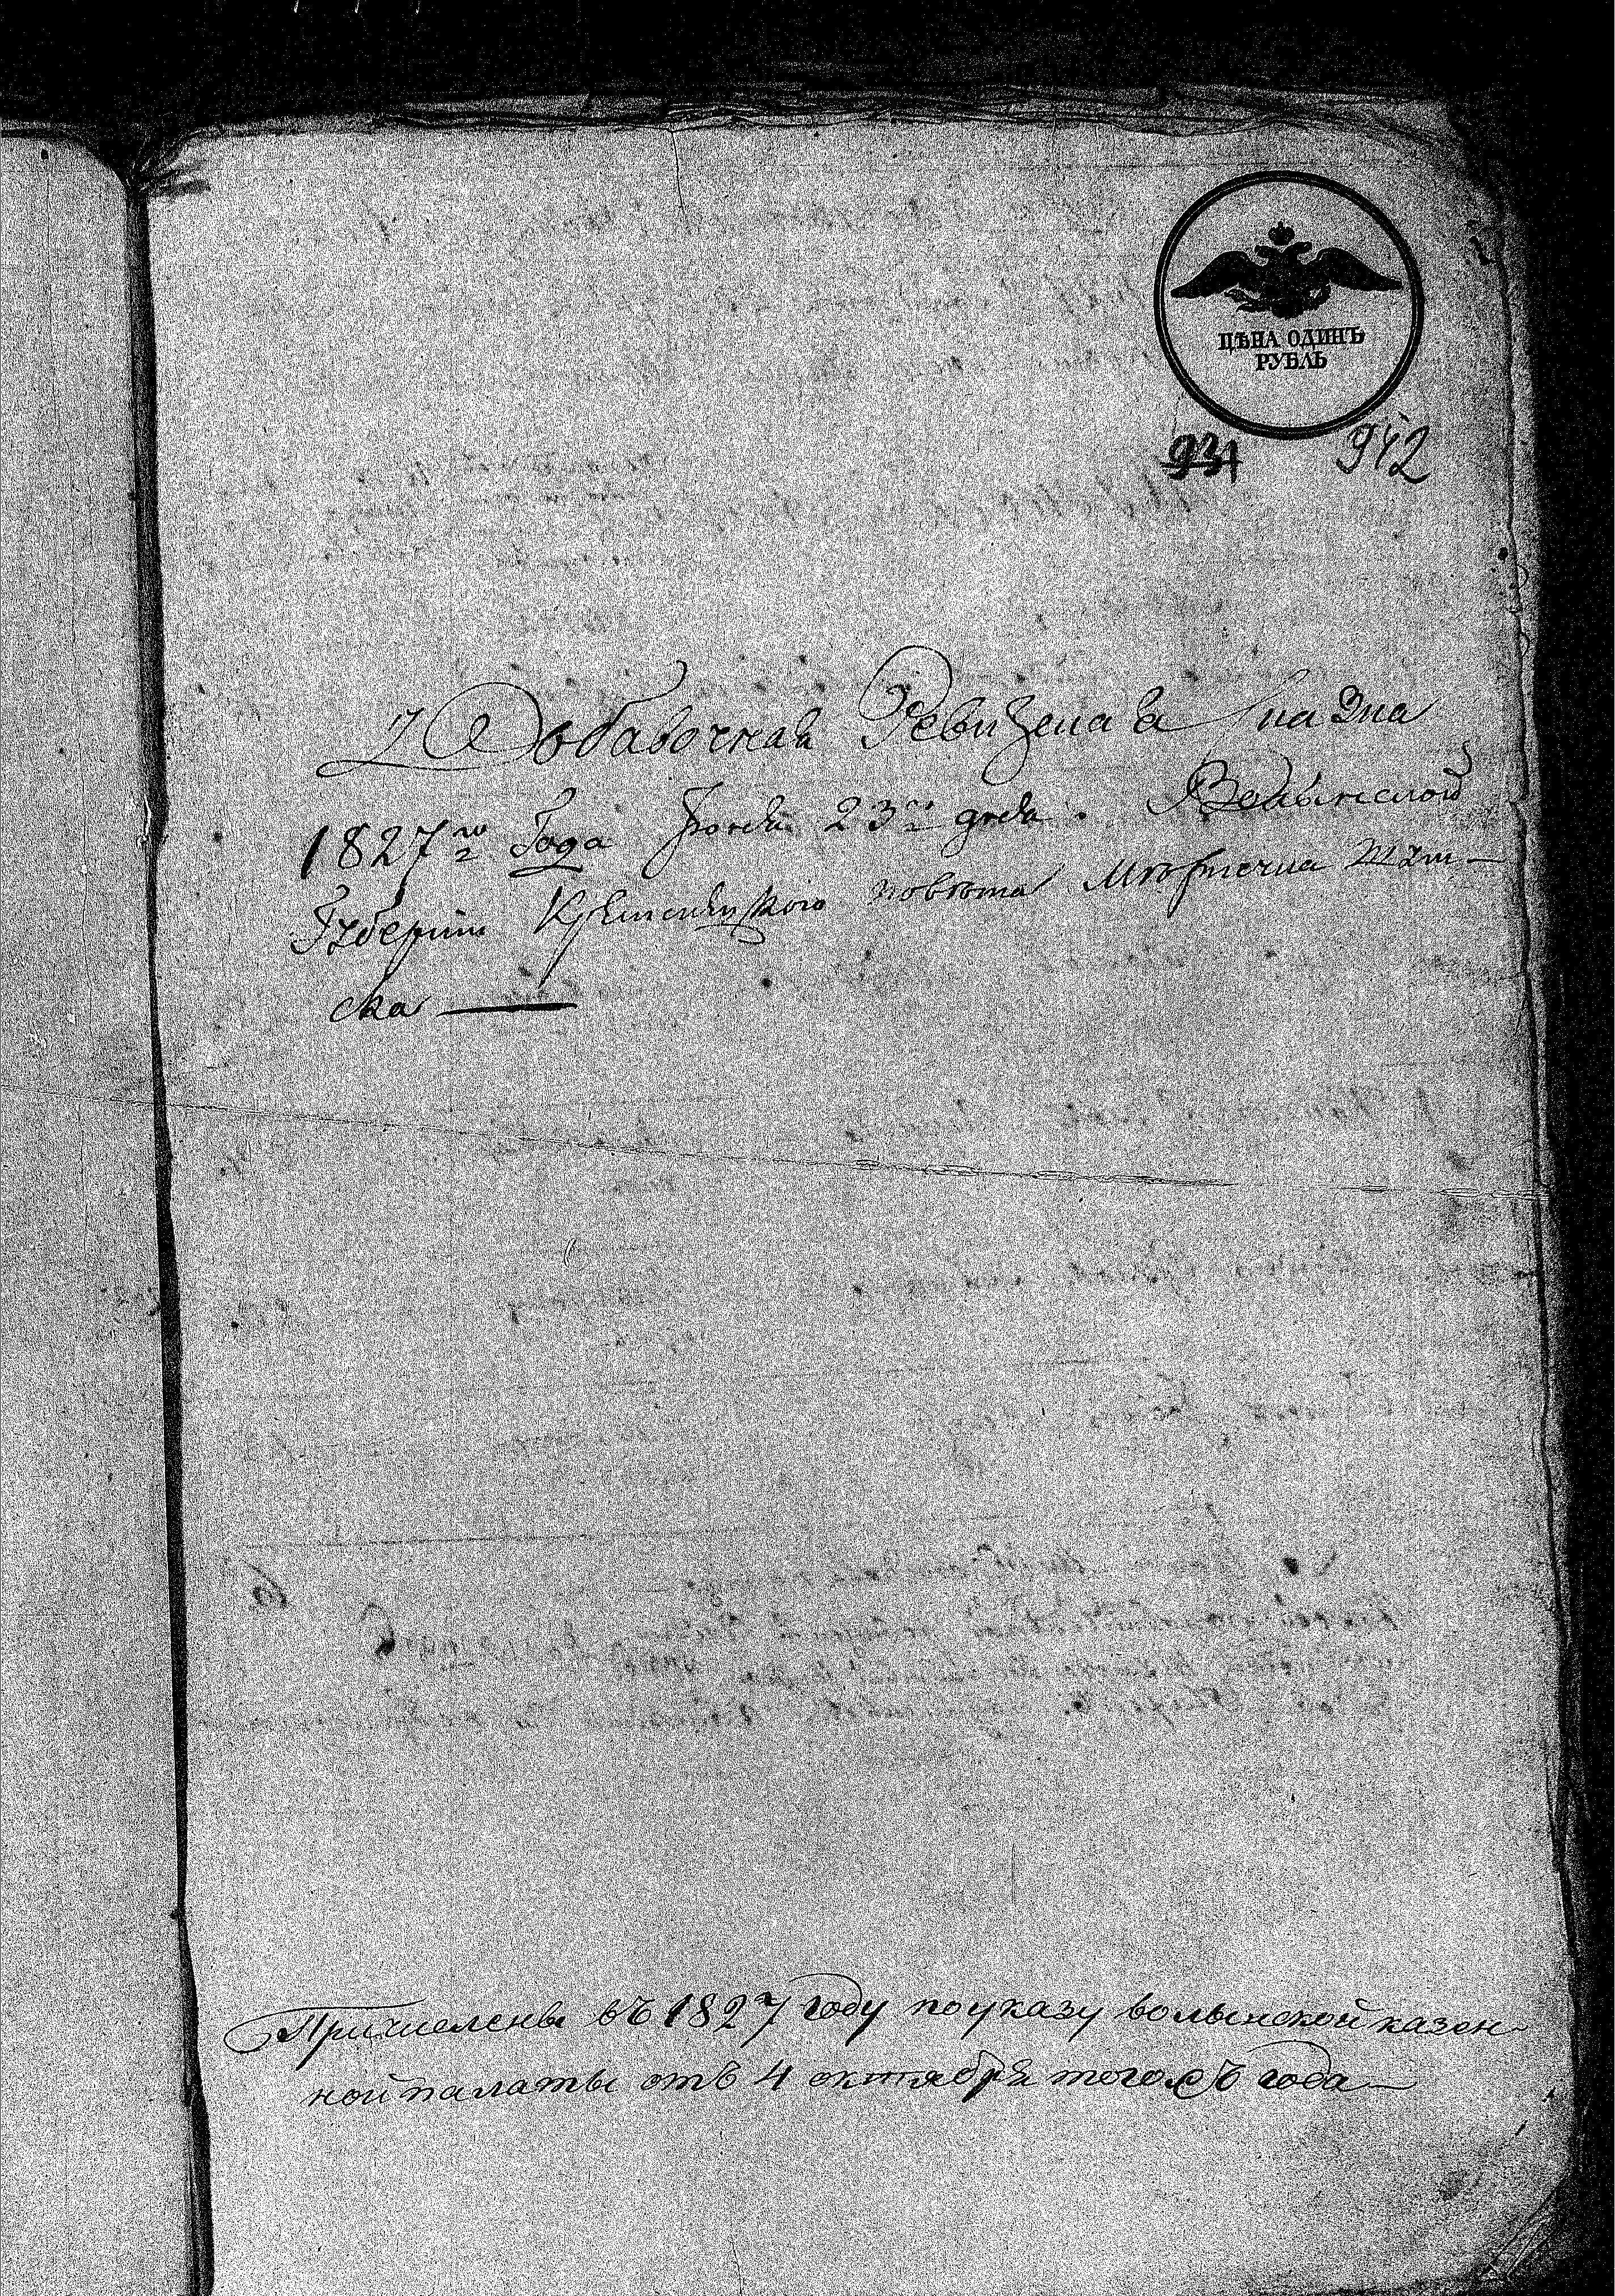 ЦѢНА ОДИНЪ
РУБЛЬ
931 942
Добавочная Ревизская Сказка
1827го Года Іюня 23го дня. Волынской
Губерніи Кременецкого повѣта Мѣстечка Ямполь-
ска
Причислены въ 1827 году по указу волынской казен-
ной палаты отъ 4 октября тогожъ года